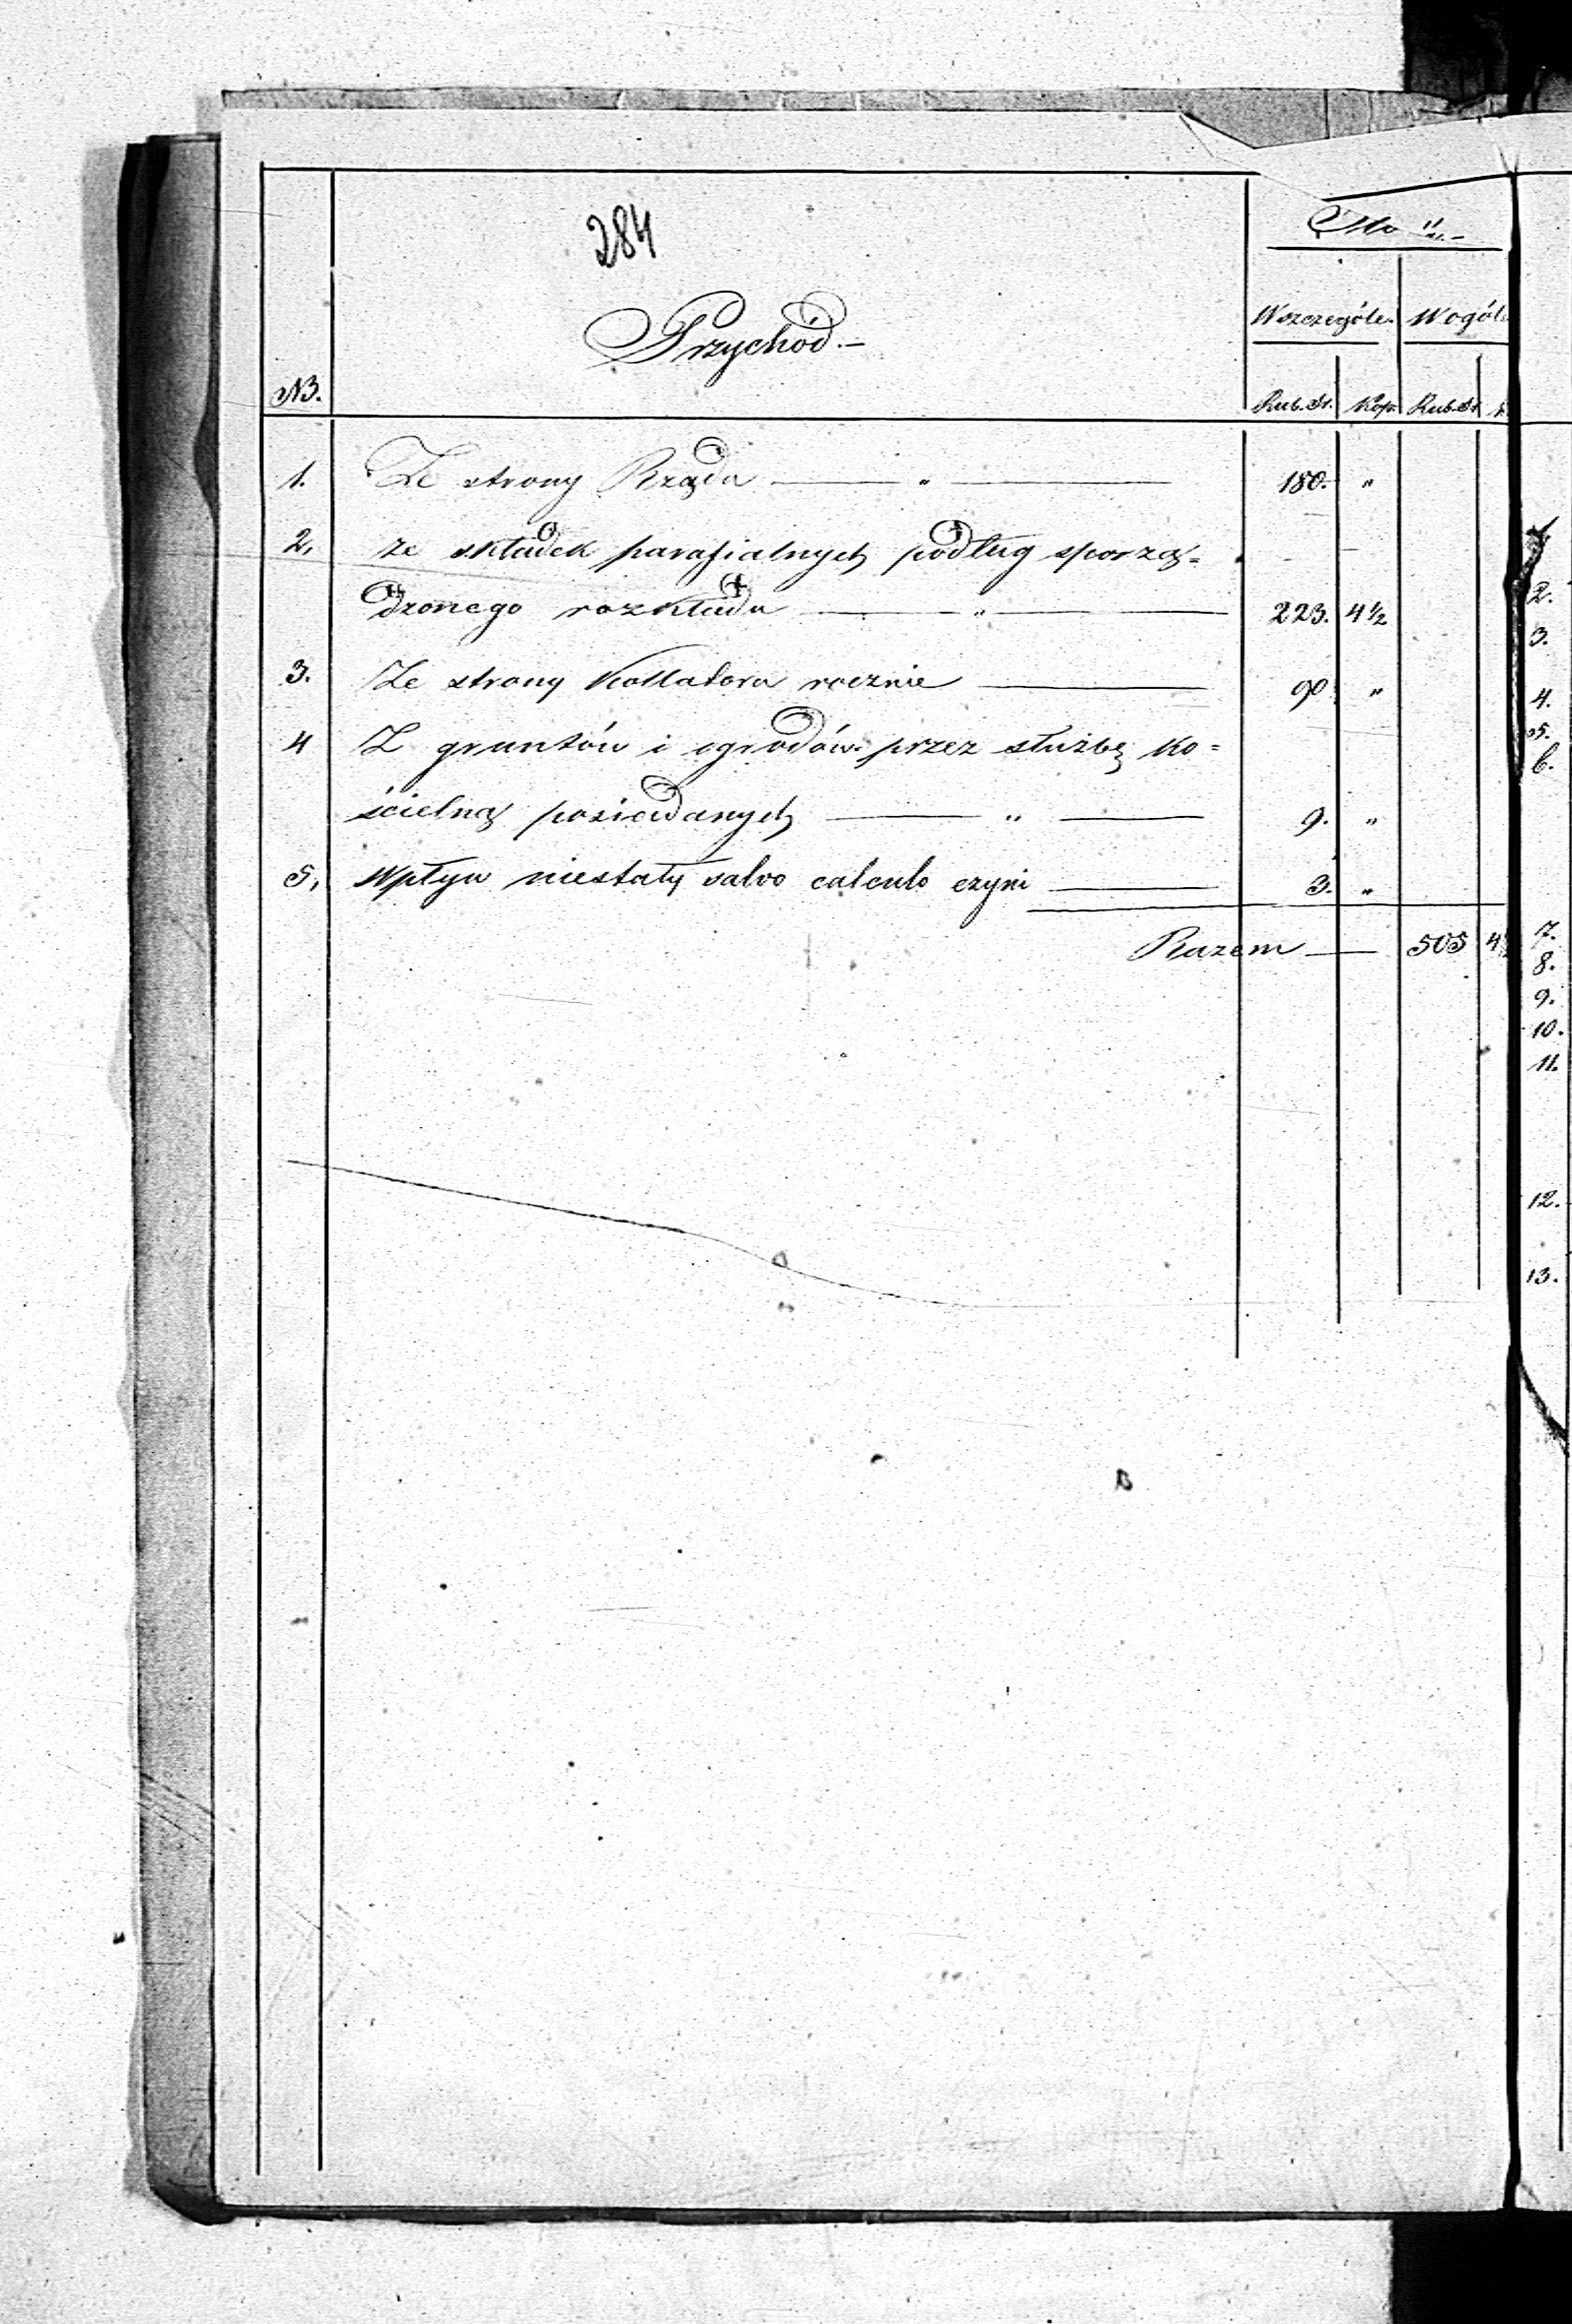 284
Przychód.—
Ilość
NB.
Wszczególe. Wogól
Rub. Sr. Kop. Rub. Sr K
1. Ze strony Rządu — " — 180. "
2. ze składek parafialnych podług sporzą=
dzonego rozkładu — " — 223. 4½
3. Ze strony Kollatora rocznie — 90. "
4 Z gruntów i ogrodów przez służbę ko=
ścielną posiadanych — " — 9. "
5. Wpływ niestały salvo calculo czyni — 3. "
Razem — 505 4½
2.
3.
4.
5.
6.
7.
8.
9.
10.
11.
12.
13.